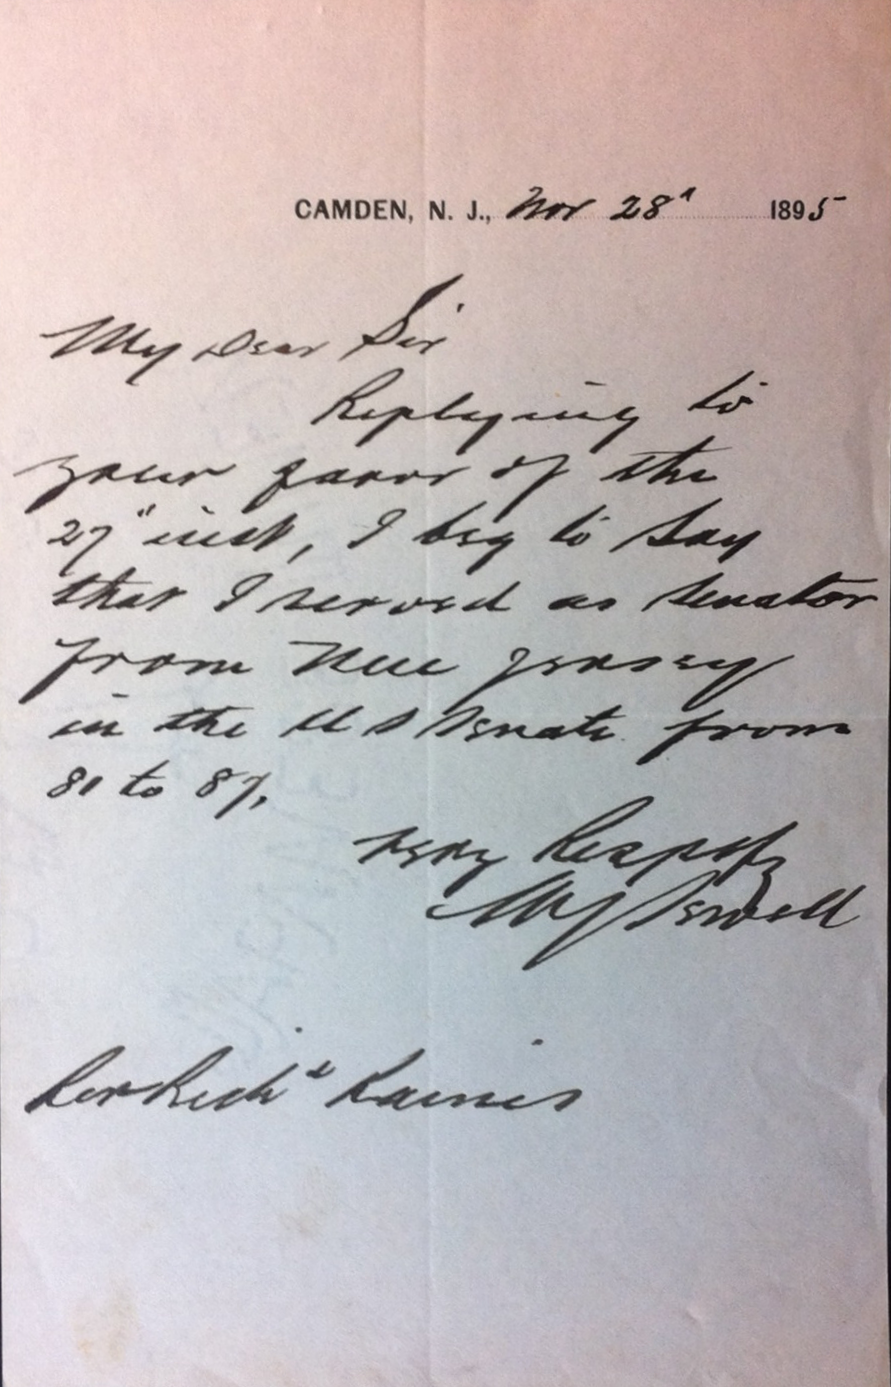 CAMDEN, N. J., Nov 28" 1895
My Dear Sir
Replying to
your favor of the
27" inst, I beg to say
that I served as Senator
from New Jersey
in the U S Senate from
81 to 87.
Very Respfy
WJ Sewell
Rev Richd Raines